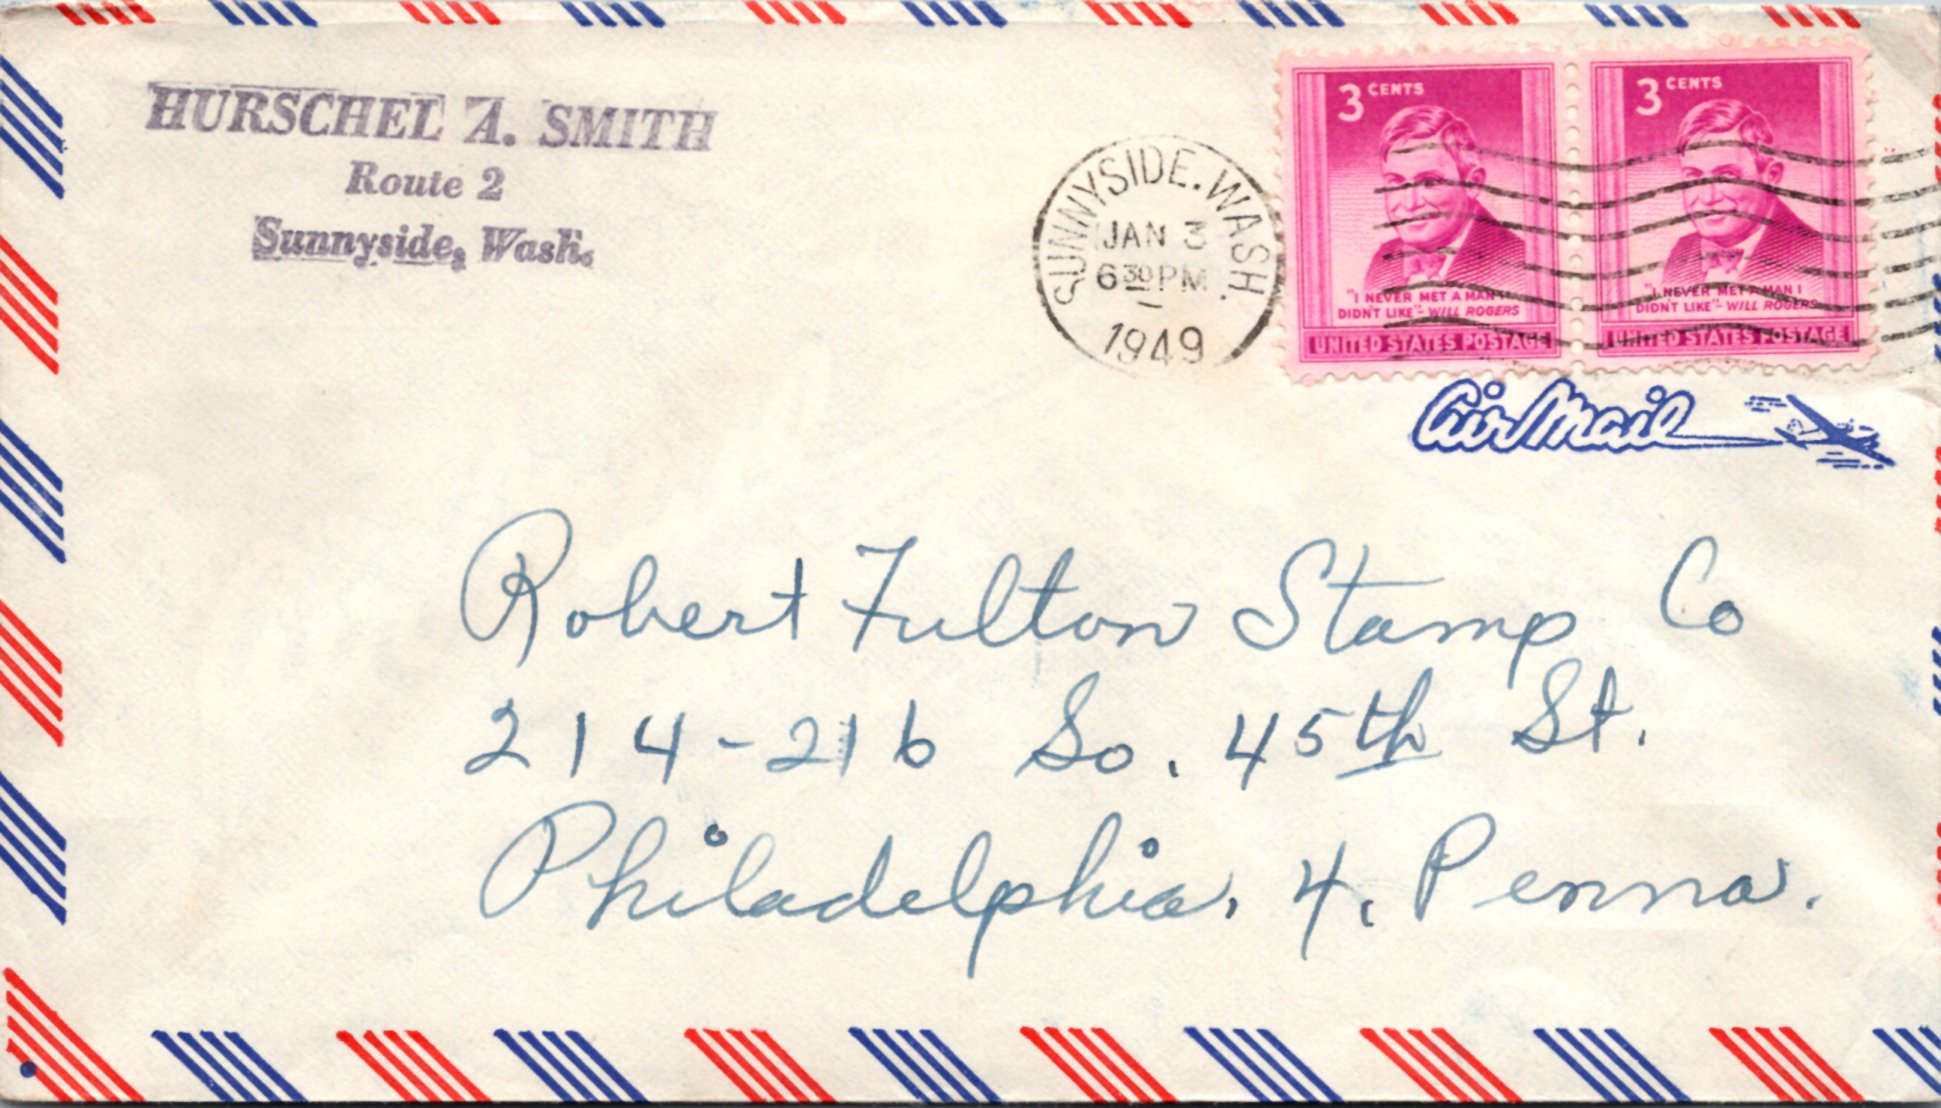 HURSCHEL A. SMITH
Route 2
Sunnyside, Wash.
SUNNYSIDE, WASH.
JAN 3
6 30 PM
1949
3 CENTS
"I NEVER MET A MAN I
DIDN'T LIKE" - WILL ROGERS
UNITED STATES POSTAGE
3 CENTS
"I NEVER MET A MAN I
DIDN'T LIKE" - WILL ROGERS
UNITED STATES POSTAGE
Air Mail
Robert Fulton Stamp Co
214-216 So. 45th St.
Philadelphia, 4, Penna.